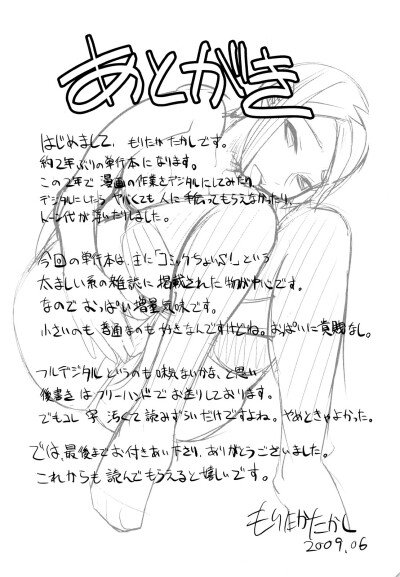 あとがき
はじめまして、もりたかたかしです。
約2年ぶりの単行本になります。
この2年で漫画の作業をデジタルにしてみたり、
デジタルにしたらヤバくても人に手伝ってもらえなかったり、
トーン代が浮いたりしました。
今回の単行本は、主に「コミックちょいS!」という
たくましい系の雑誌に掲載された物が中心です。
なので おっぱい増量気味です。
小さいのも普通なのも好きなんですけどね。おっぱいに貴賎なし。
フルデジタルというのも味気ないかな、と思い
後書きはフリーハンドでお送りしております。
でもコレ 字 汚くて読みづらいだけですよね。やめときゃよかった。
では、最後までお付きあい下さり、ありがとうございました。
これからも読んでもらえると嬉しいです。
もりたかたかし
2009.06